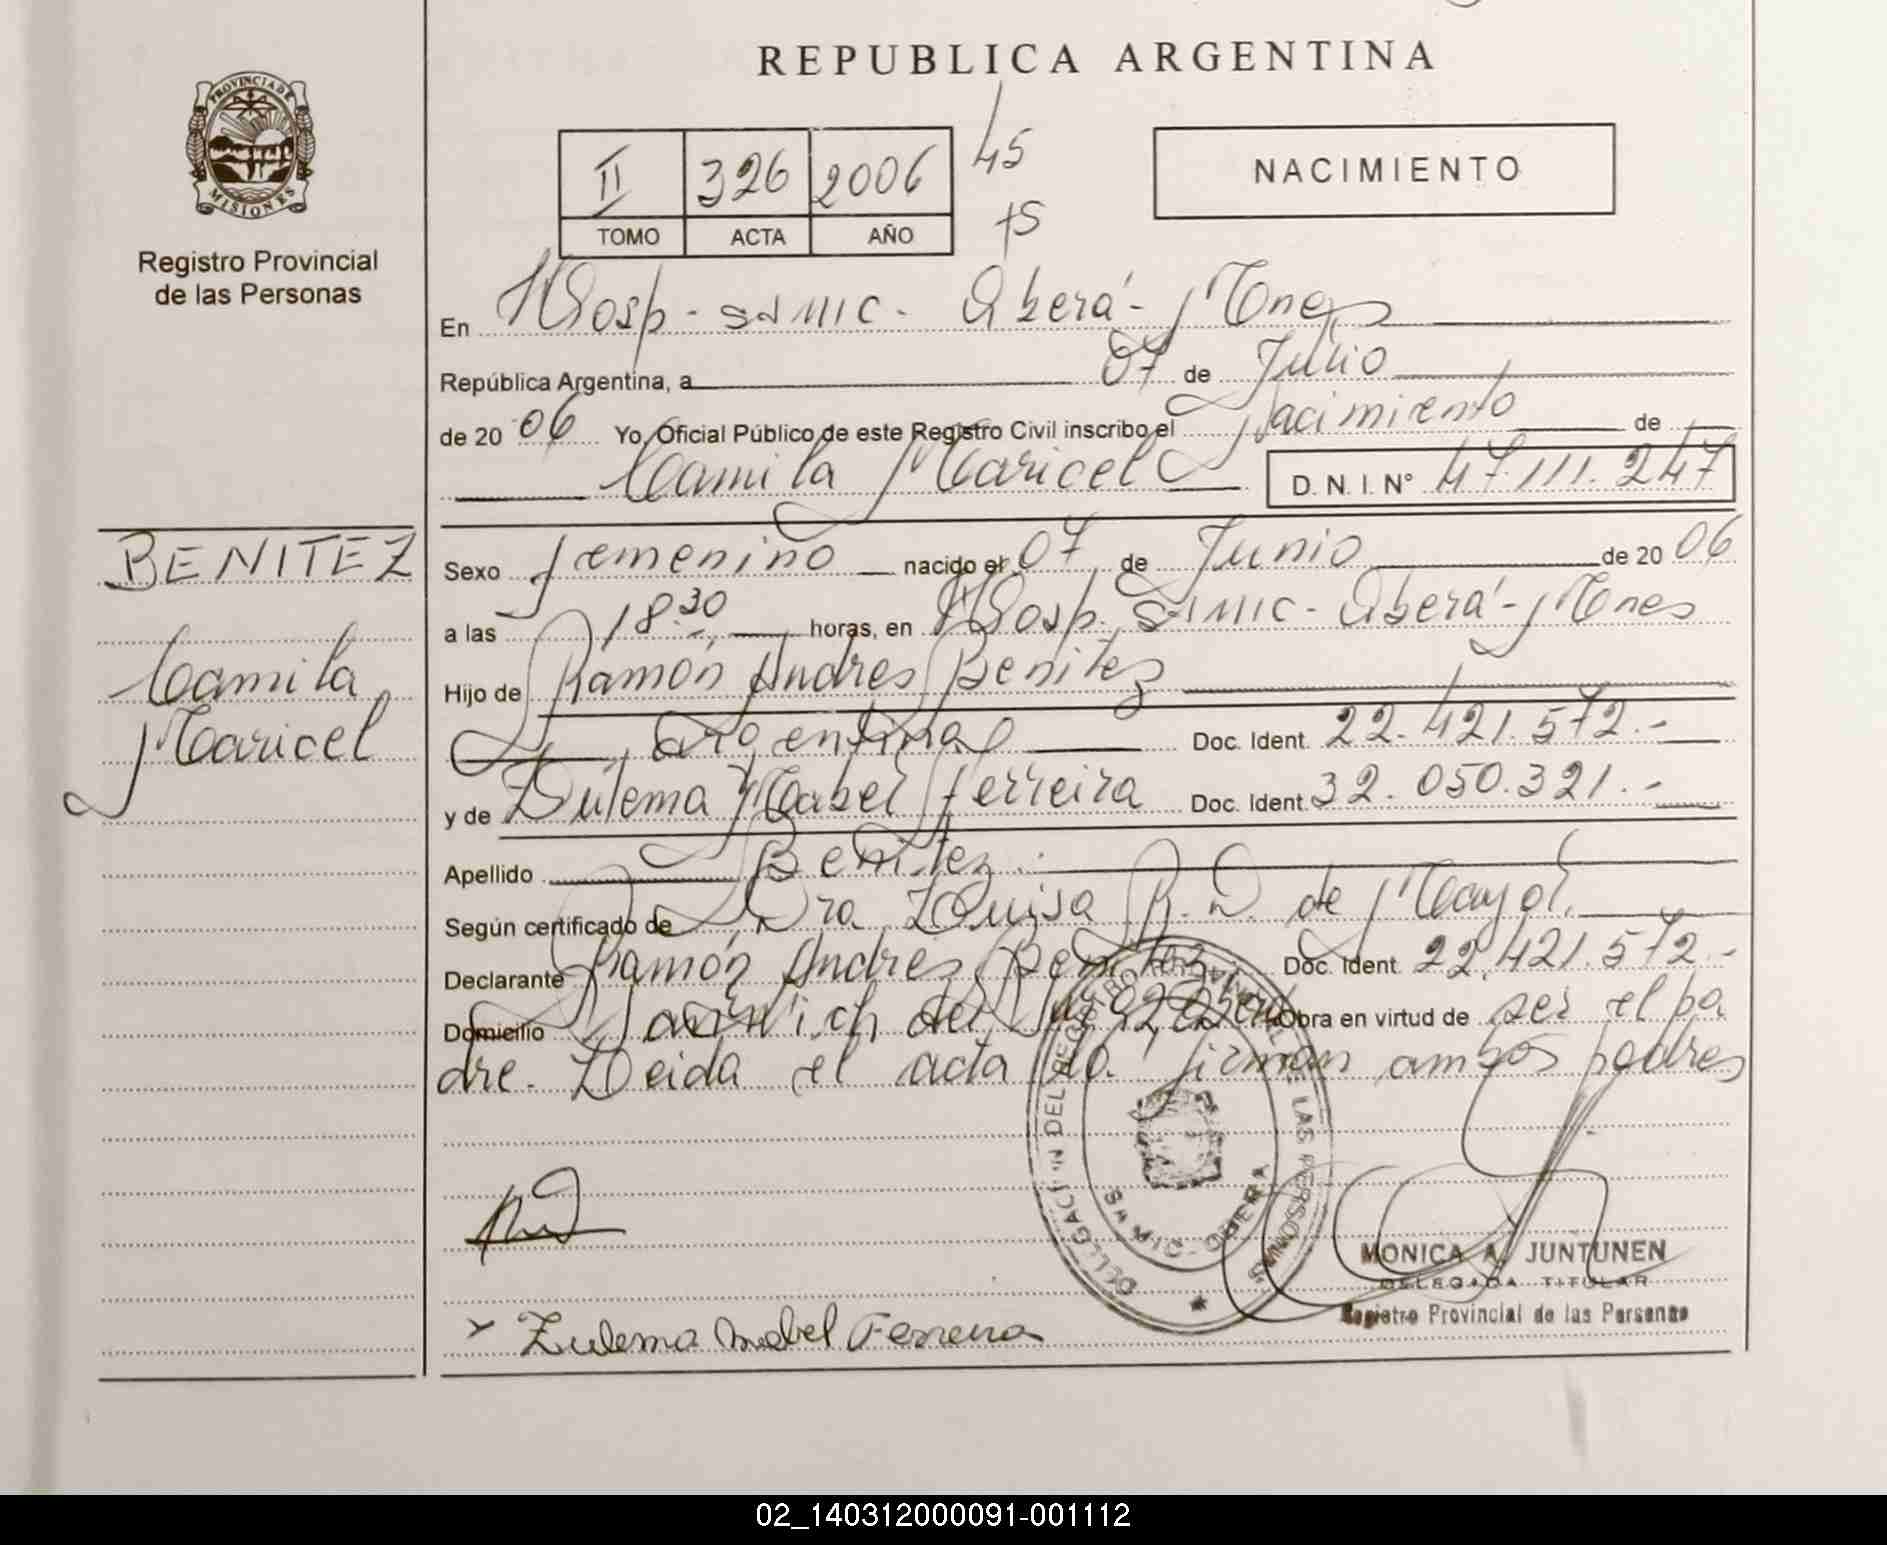 REPUBLICA ARGENTINA
PROVINCIA DE MISIONES
Registro Provincial
de las Personas
II 326 2006
TOMO ACTA AÑO
45
75
NACIMIENTO
En Hosp. SAMIC. Oberá - Mnes
República Argentina, a 07 de Julio
de 20 06 Yo, Oficial Público de este Registro Civil inscribo el Nacimiento de
Camila Maricel D. N. I. N° 47.111.247
BENITEZ
Camila
Maricel
Sexo femenino nacido el 07 de Junio de 20 06
a las 18.30 horas, en Hosp. SAMIC - Oberá - Mnes
Hijo de Ramón Andres Benitez
Argentina Doc. Ident. 22.421.572.-
y de Zulema Mabel Ferreira Doc. Ident. 32.050.321.-
Apellido Benitez.
Según certificado de Dra. Luisa R. D. de Mayol.
Declarante Ramón Andres Benitez Doc. Ident. 22.421.572.-
Domicilio Obra en virtud de ser el pa
dre. Leida el acta la firman ambos padres
DELEGACION DEL REGISTRO PROVINCIAL DE LAS PERSONAS
SAMIC - OBERA
Zulema Mabel Ferreira
MONICA A. JUNTUNEN
DELEGADA TITULAR
Registro Provincial de las Personas
02_140312000091-001112